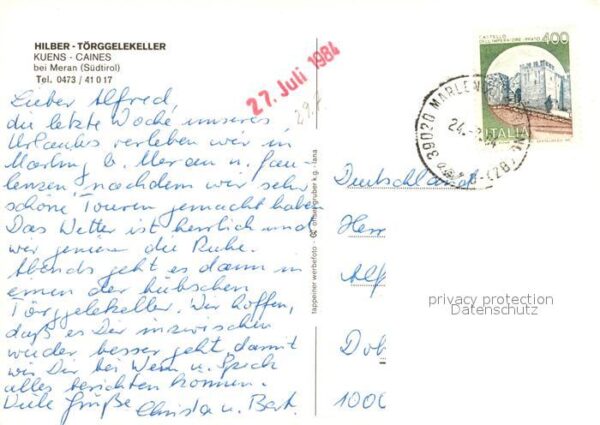 HILBER - TÖRGGELEKELLER
KUENS - CAINES
bei Meran (Südtirol)
Tel. 0473 / 41017
27. Juli 1984
Lieber Alfred,
die letzte Woche unseres
Urlaubes verleben wir in
Marling b. Meran u. fau-
lenzen, nachdem wir sehr
schöne Touren gemacht haben
Das Wetter ist herrlich und
wir genießen die Ruhe.
Abends geht es dann in
einen der hübschen
Törggelekeller. Wir hoffen,
daß es Dir inzwischen
wieder besser geht, damit
wir Dir bei Wein u. Speck
alles berichten können.
Viele Grüße Christa u. Bert.
tappeiner werbefoto offsetgruber k.g. - lana
CASTELLO
DELL'IMPERATORE - PRATO
400
ITALIA
39020 MARLENGO
(BZ)
Deutschland
Herr
Alf
Dob
1000
privacy protection
Datenschutz